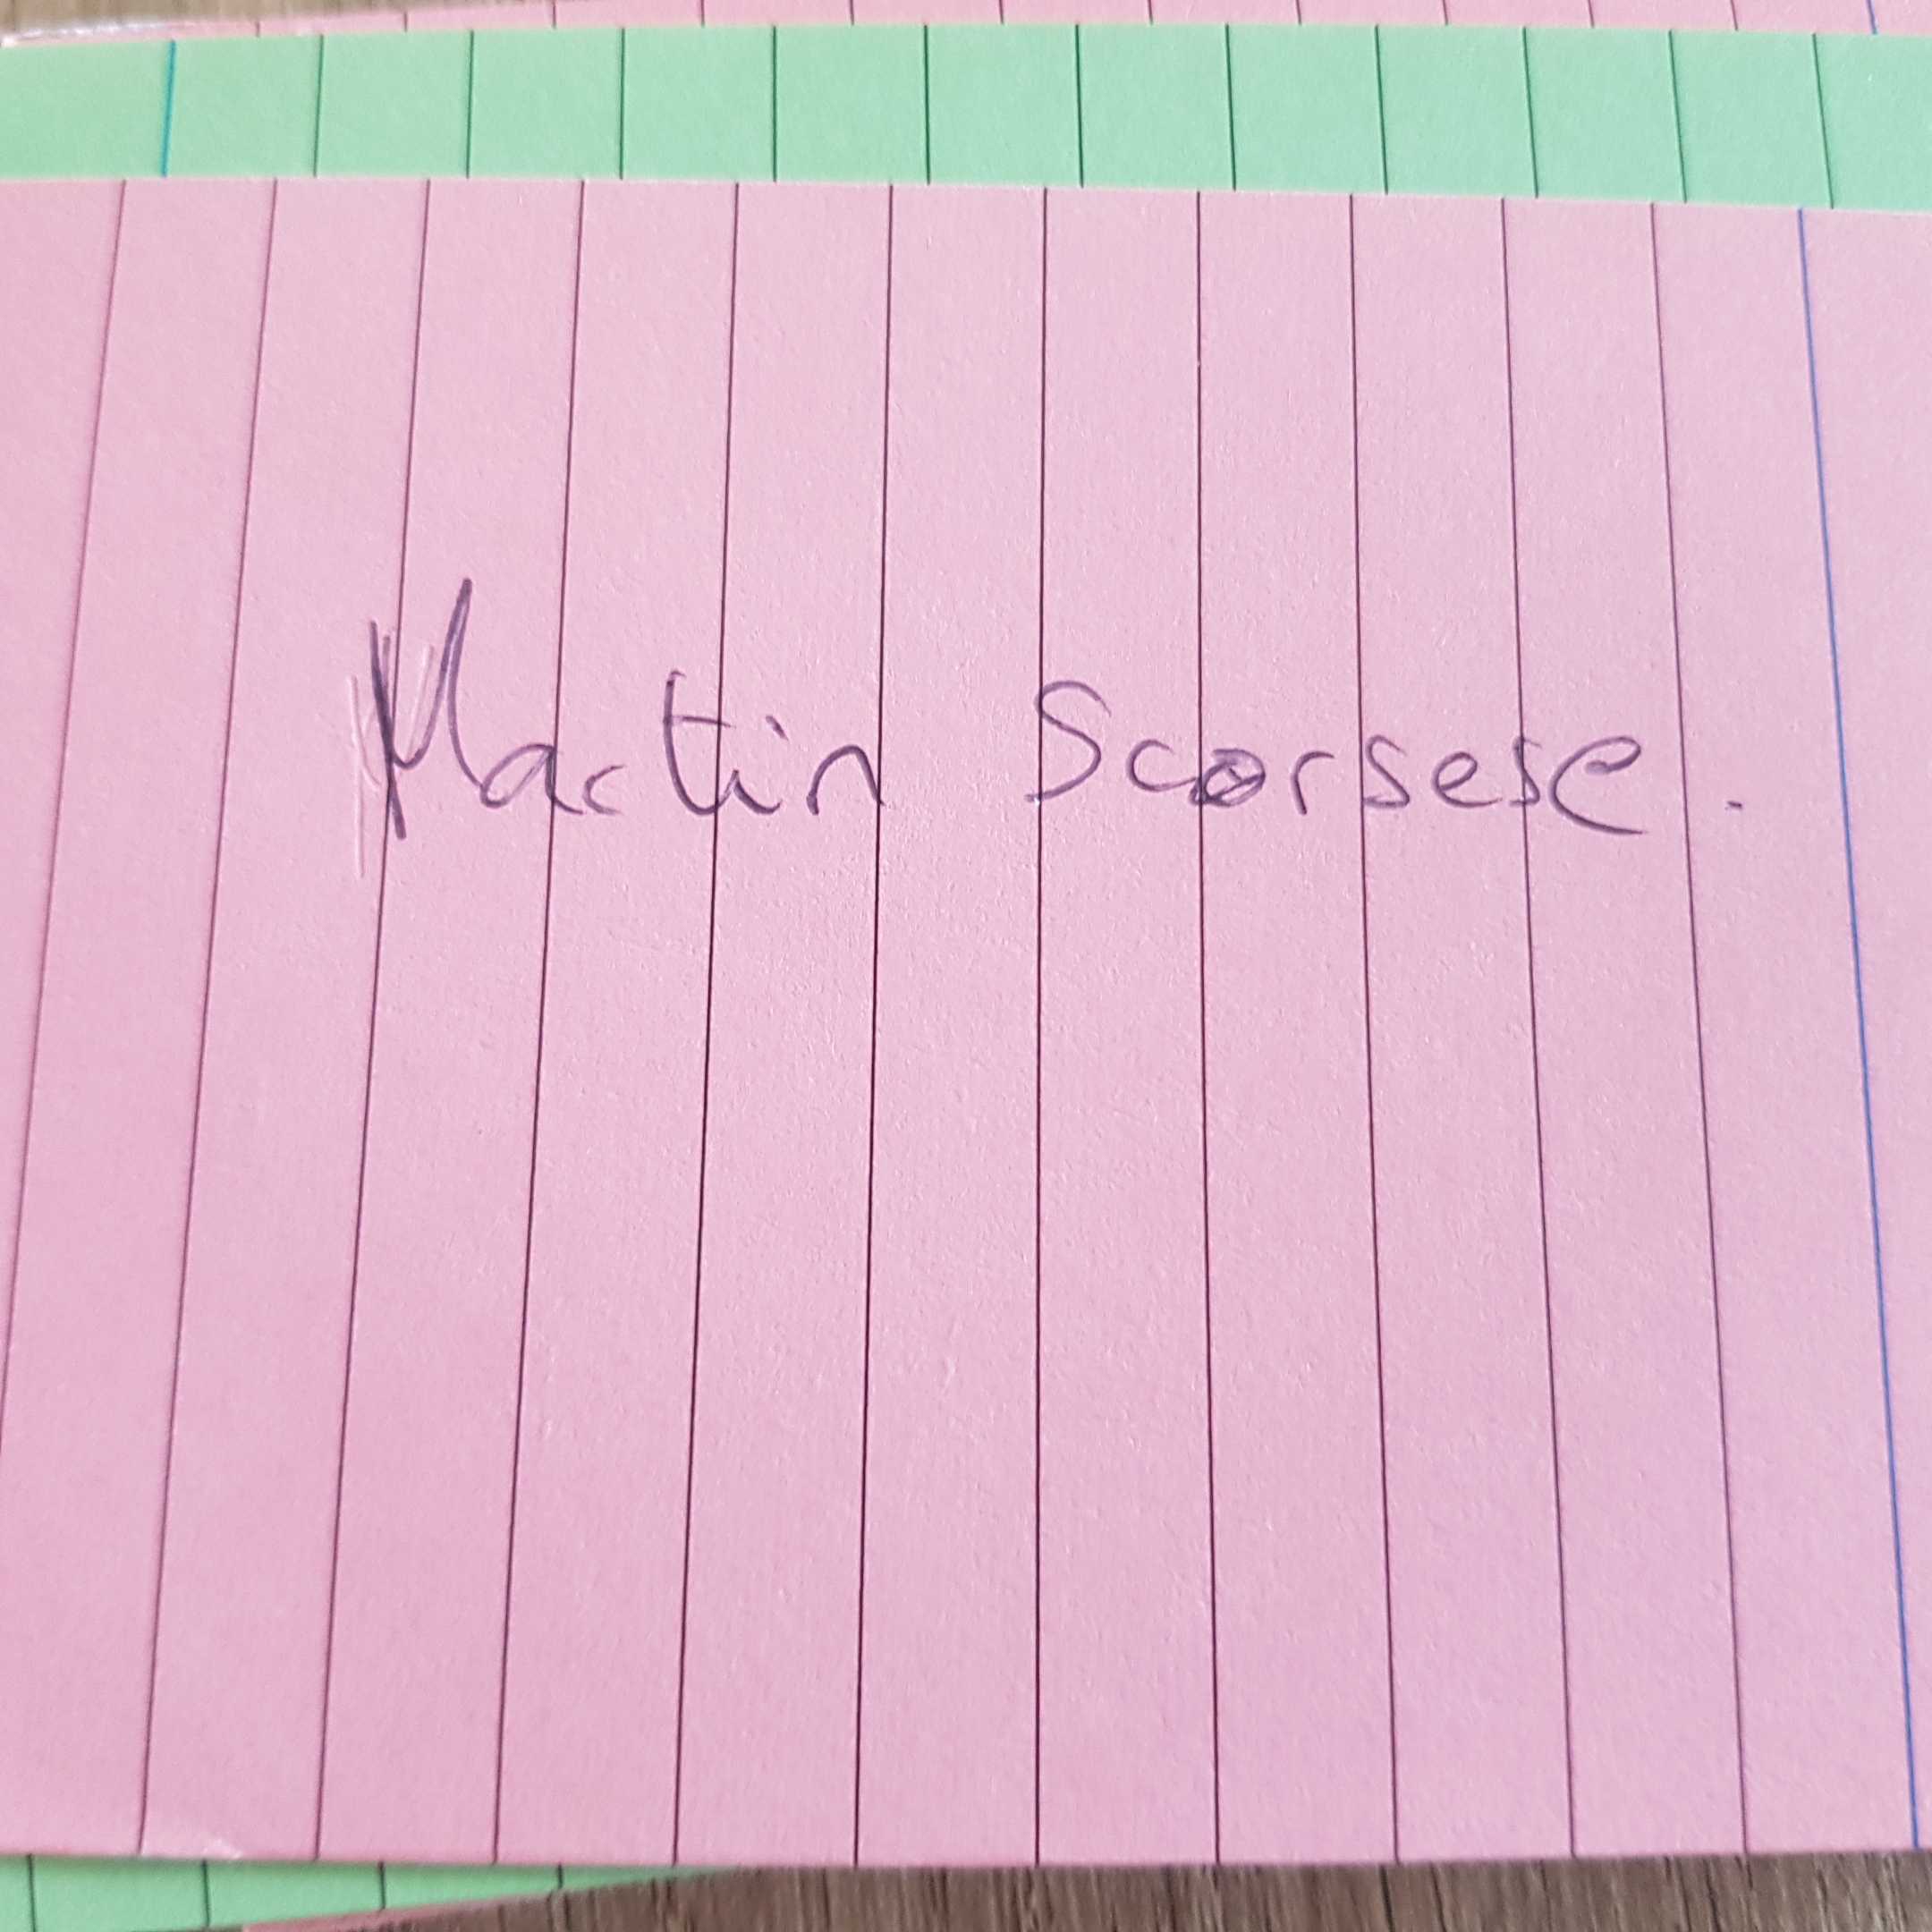 Martin Scorsese.